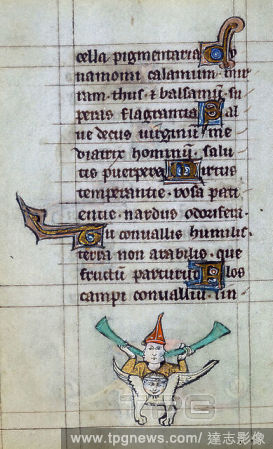 cella pigmentaria Cy
namomi calamum mir
ram · thus · & balsamū · su
perās flagrantia · Sal
ue decus uirginū me
diatrix hominū · salu
tis puerpera Mirtus
temperantie · rosa pati
entie · nardus odoriferi
Tu conuallis humilis ·
terra non arabilis · que
fructū parturiit Flos
campi conualliū · sin
TPG
www.tpgnews.com / 達志影像